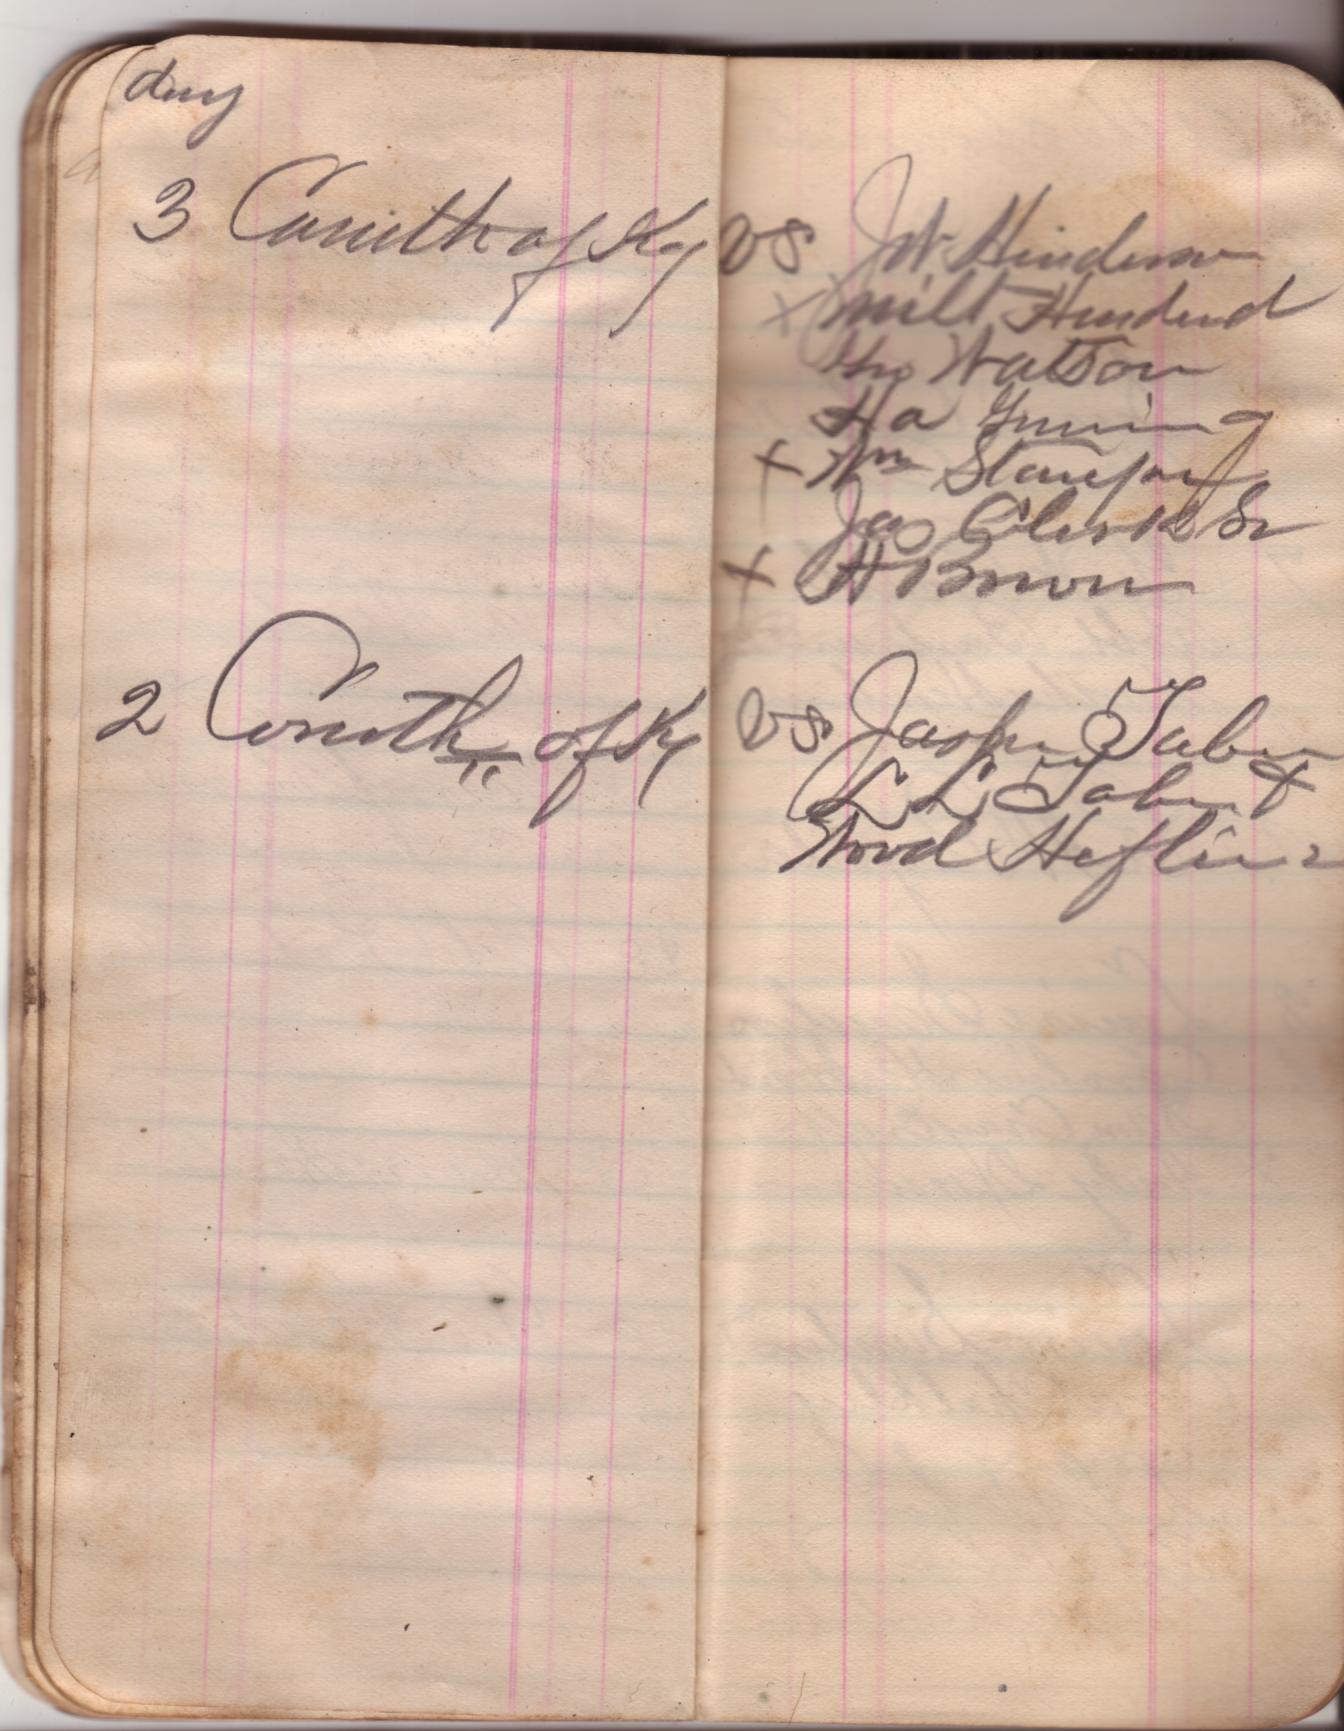 day
3 Comwth of Ky vs Jno Henderson
x Milt
Geo Watson
Ha
x Wm
Jas Clark Sr
x H Brown
2 Comwth of Ky vs Jasper Taber
L L Taber x
Wood Heflin